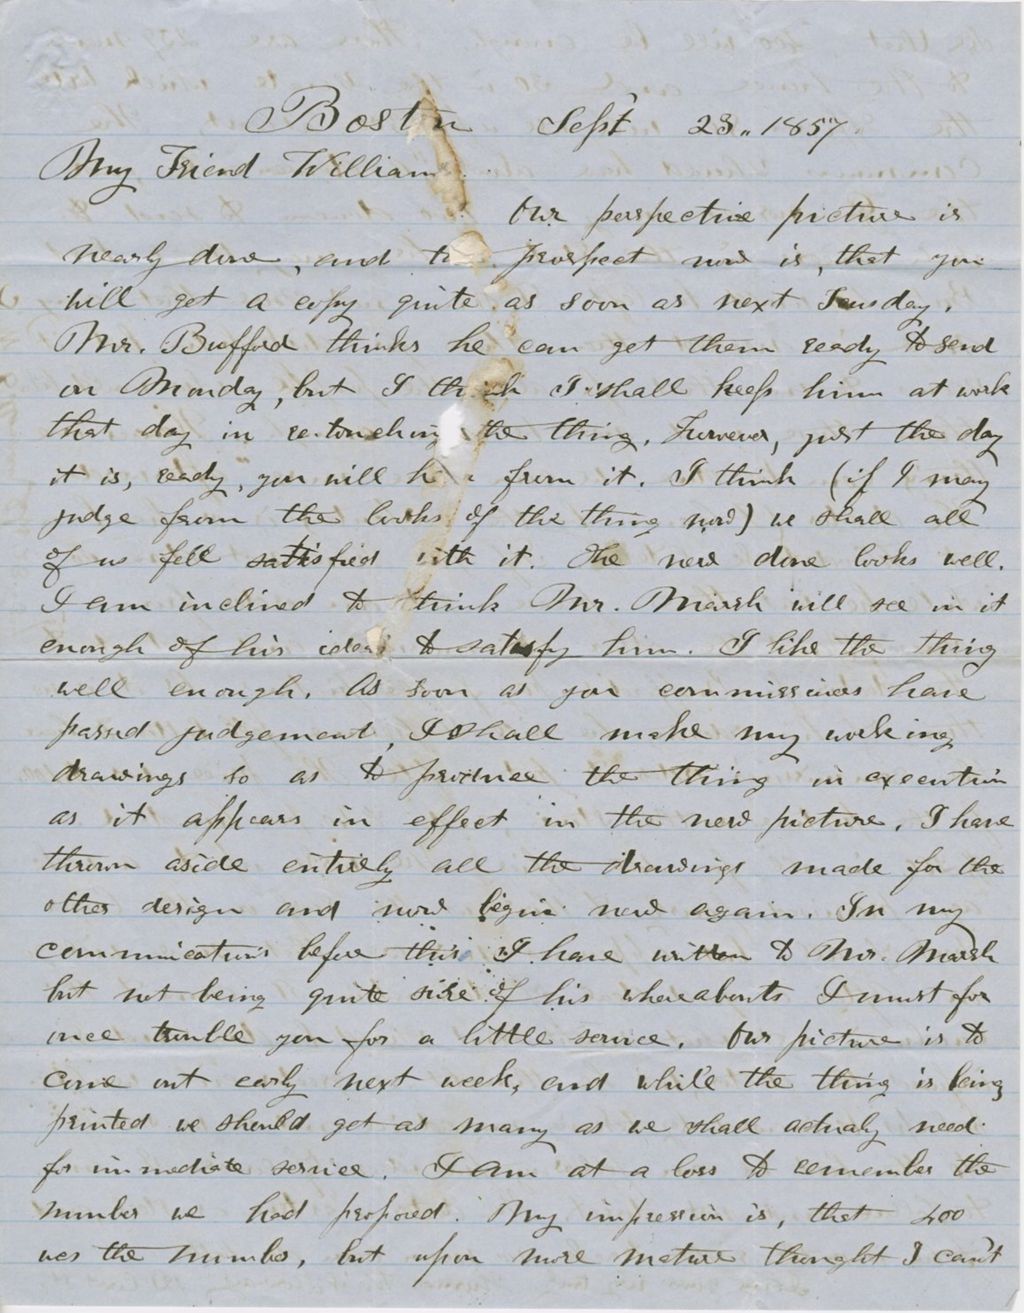 Boston Sept 23.. 1857
My Friend William
Our perspective picture is
nearly done, and the prospect now is, that you
will get a copy quite as soon as next Tuesday.
Mr. Bufford thinks he can get them ready to send
on Monday, but I think I shall keep him at work
that day in re-touching the thing. However, just the day
it is, ready, you will h from it. I think (if I may
judge from the looks of the thing now) we shall all
of us fell satisfied with it. The new dome looks well.
I am inclined to think Mr. Marsh will see in it
enough of his ideas to satisfy him. I like the thing
well enough. As soon as you commissioners have
passed judgement, I shall make my working
drawings so as to produce the thing in execution
as it appears in effect in the new picture. I have
thrown aside entirely all the drawings made for the
other design and now begin new again. In my
communications before this I have written to Mr. Marsh
but not being quite sure of his whereabouts I must for
once trouble you for a little service. Our picture is to
come out early next week, and while the thing is being
printed we should get as many as we shall actualy need
for immediate service. I am at a loss to remember the
number we had proposed. My impression is, that 400
was the number, but upon more mature thought I can't